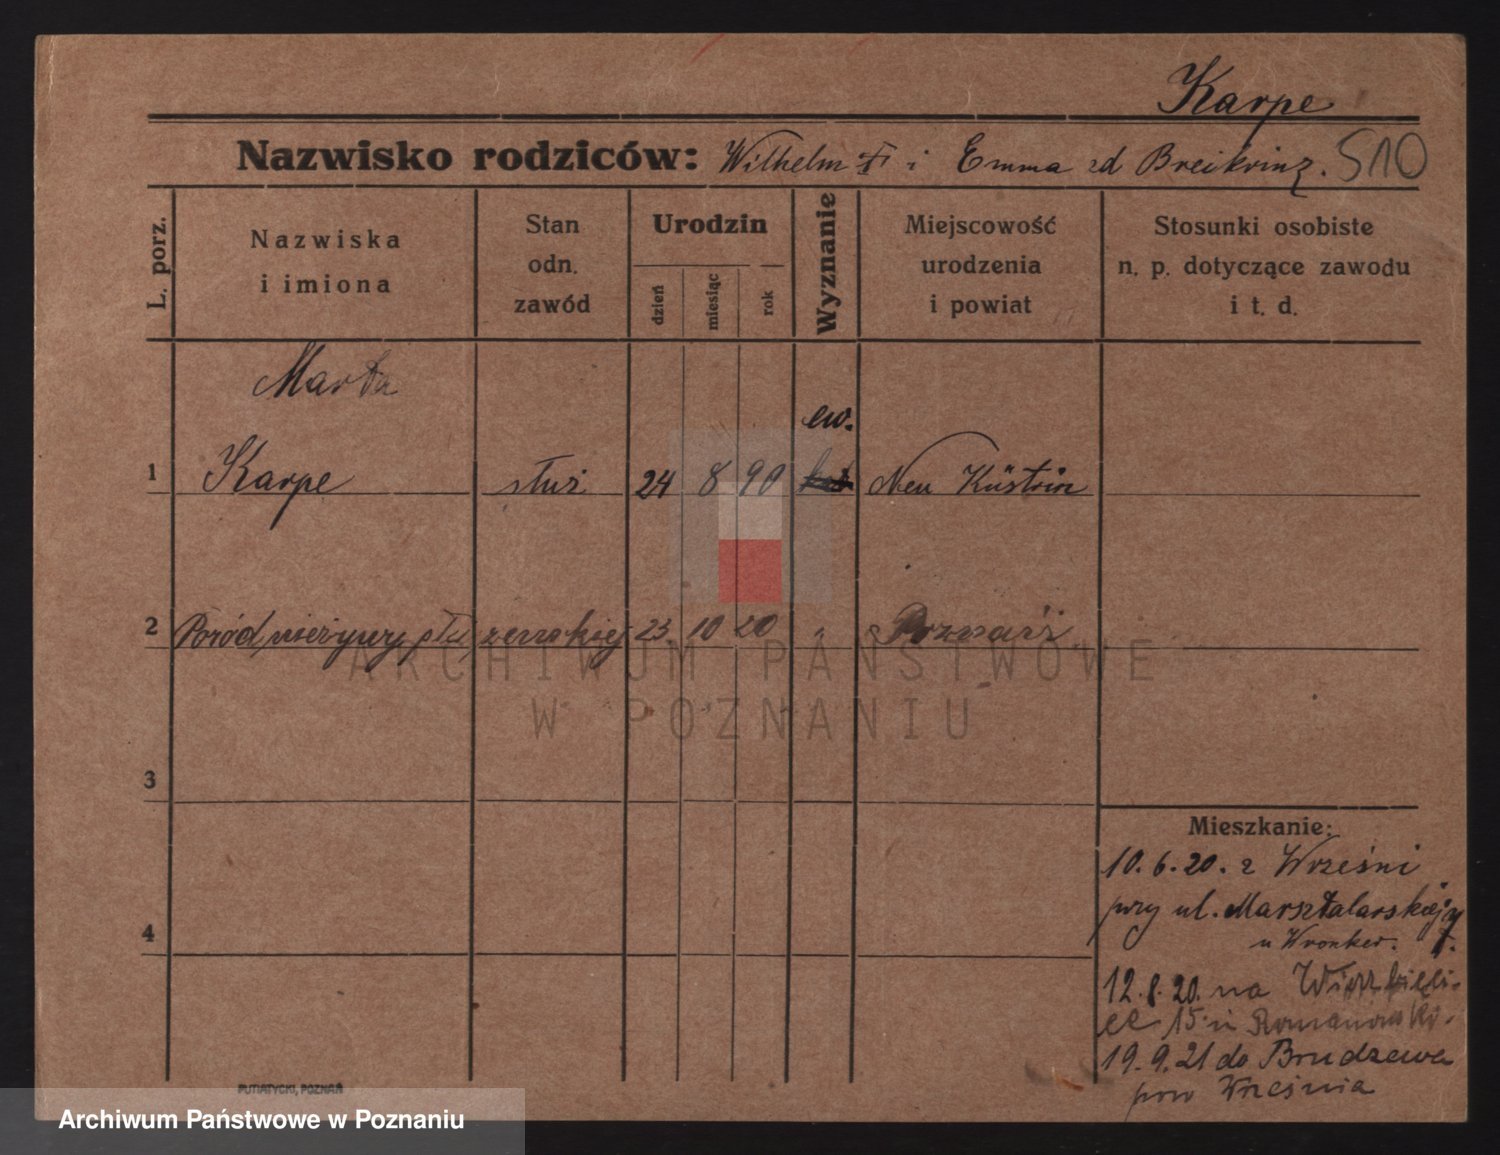 Karpe
Nazwisko rodziców: Wilhelm i Emma zd Breikrinz. 510
L. porz.
Nazwiska
i imiona
Stan
odn.
zawód
Urodzin
dzień
miesiąc
rok
Wyznanie
Miejscowość
urodzenia
i powiat
Stosunki osobiste
n. p. dotyczące zawodu
i t. d.
Marta
ew.
1 Karpe służ 24 8 90 Neu Küstrin
2 Poród nieżywy płci żeńskiej 23 10 20 " Poznań
3
4
Mieszkanie:
10.6.20. z Wrześni
przy ul. Marsztalarskiej 7
u Wronker.
12.8.20. na Wierzbięci-
ce 15 u Romanowski.
19.9.21 do Brudzewa
pow Września
PUTIATYCKI, POZNAŃ
ARCHIWUM PAŃSTWOWE
W POZNANIU
Archiwum Państwowe w Poznaniu